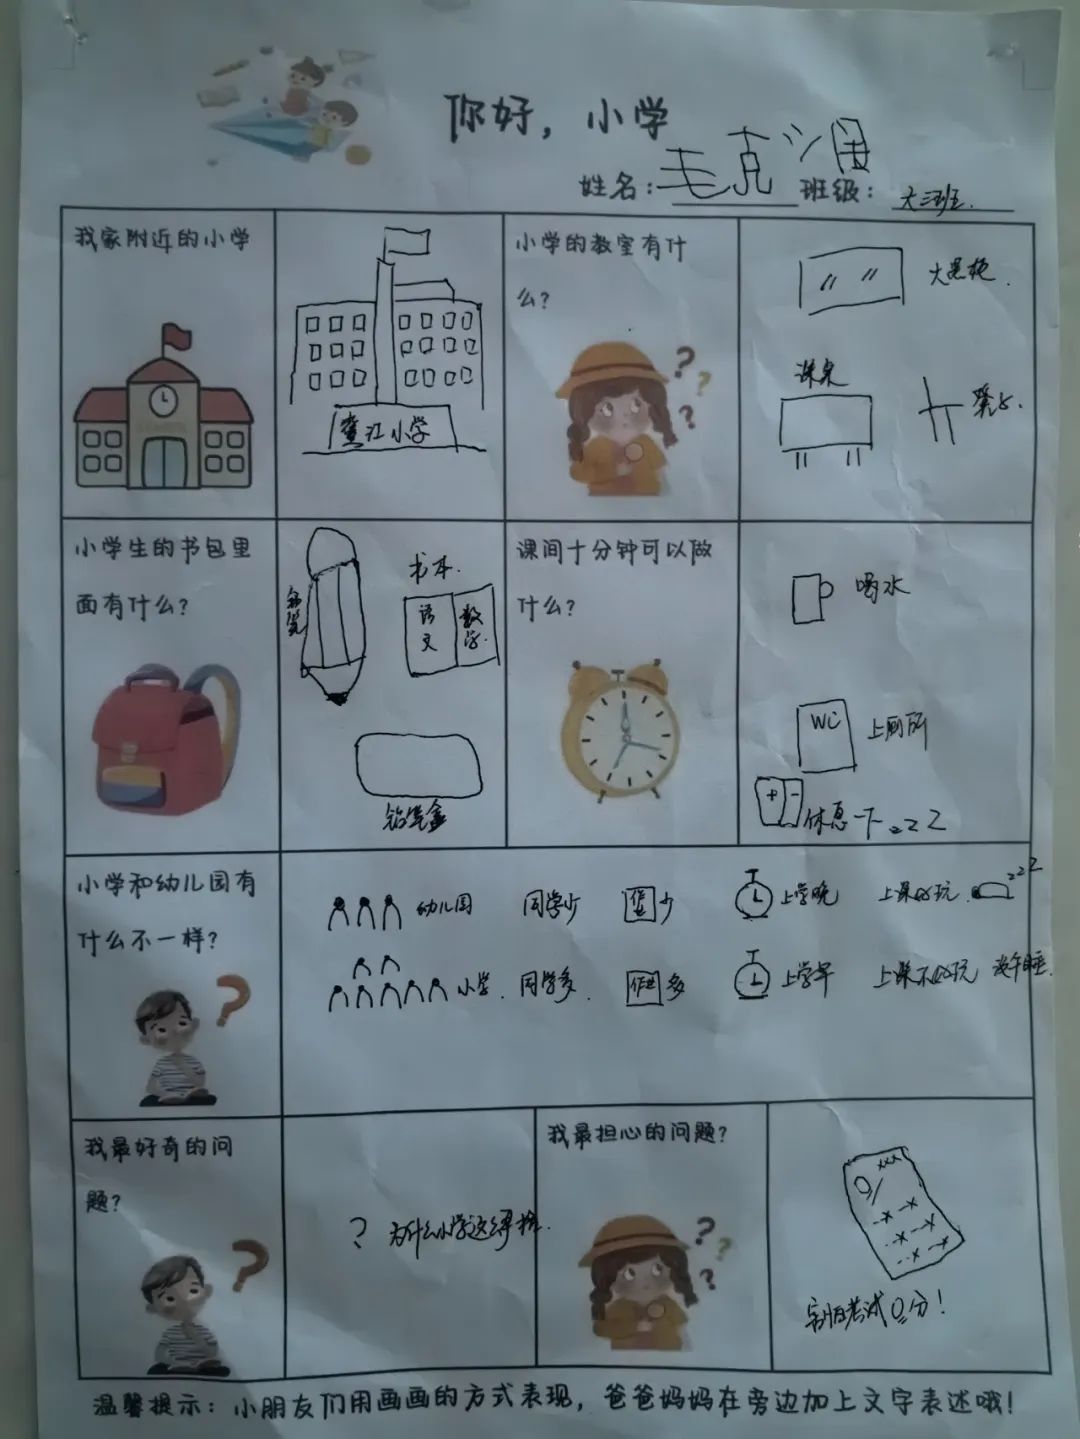 你好，小学
姓名：毛克 班级：大三班.
我家附近的小学
黄江小学
小学的教室有什
么？
大黑板.
课桌
凳子.
小学生的书包里
面有什么？
铅笔
书本.
语文
数学.
铅笔盒
课间十分钟可以做
什么？
喝水
WC
上厕所
+ -
休息一下 zzZ
小学和幼儿园有
什么不一样？
幼儿园 同学少 作业少 上学晚 上课好玩. zzZ
小学. 同学多. 作业多 上学早 上课不好玩 没午睡.
我最好奇的问
题？
? 为什么小学这么早
我最担心的问题？
xxx
0
害怕考试0分！
温馨提示：小朋友们用画画的方式表现，爸爸妈妈在旁边加上文字表述哦！